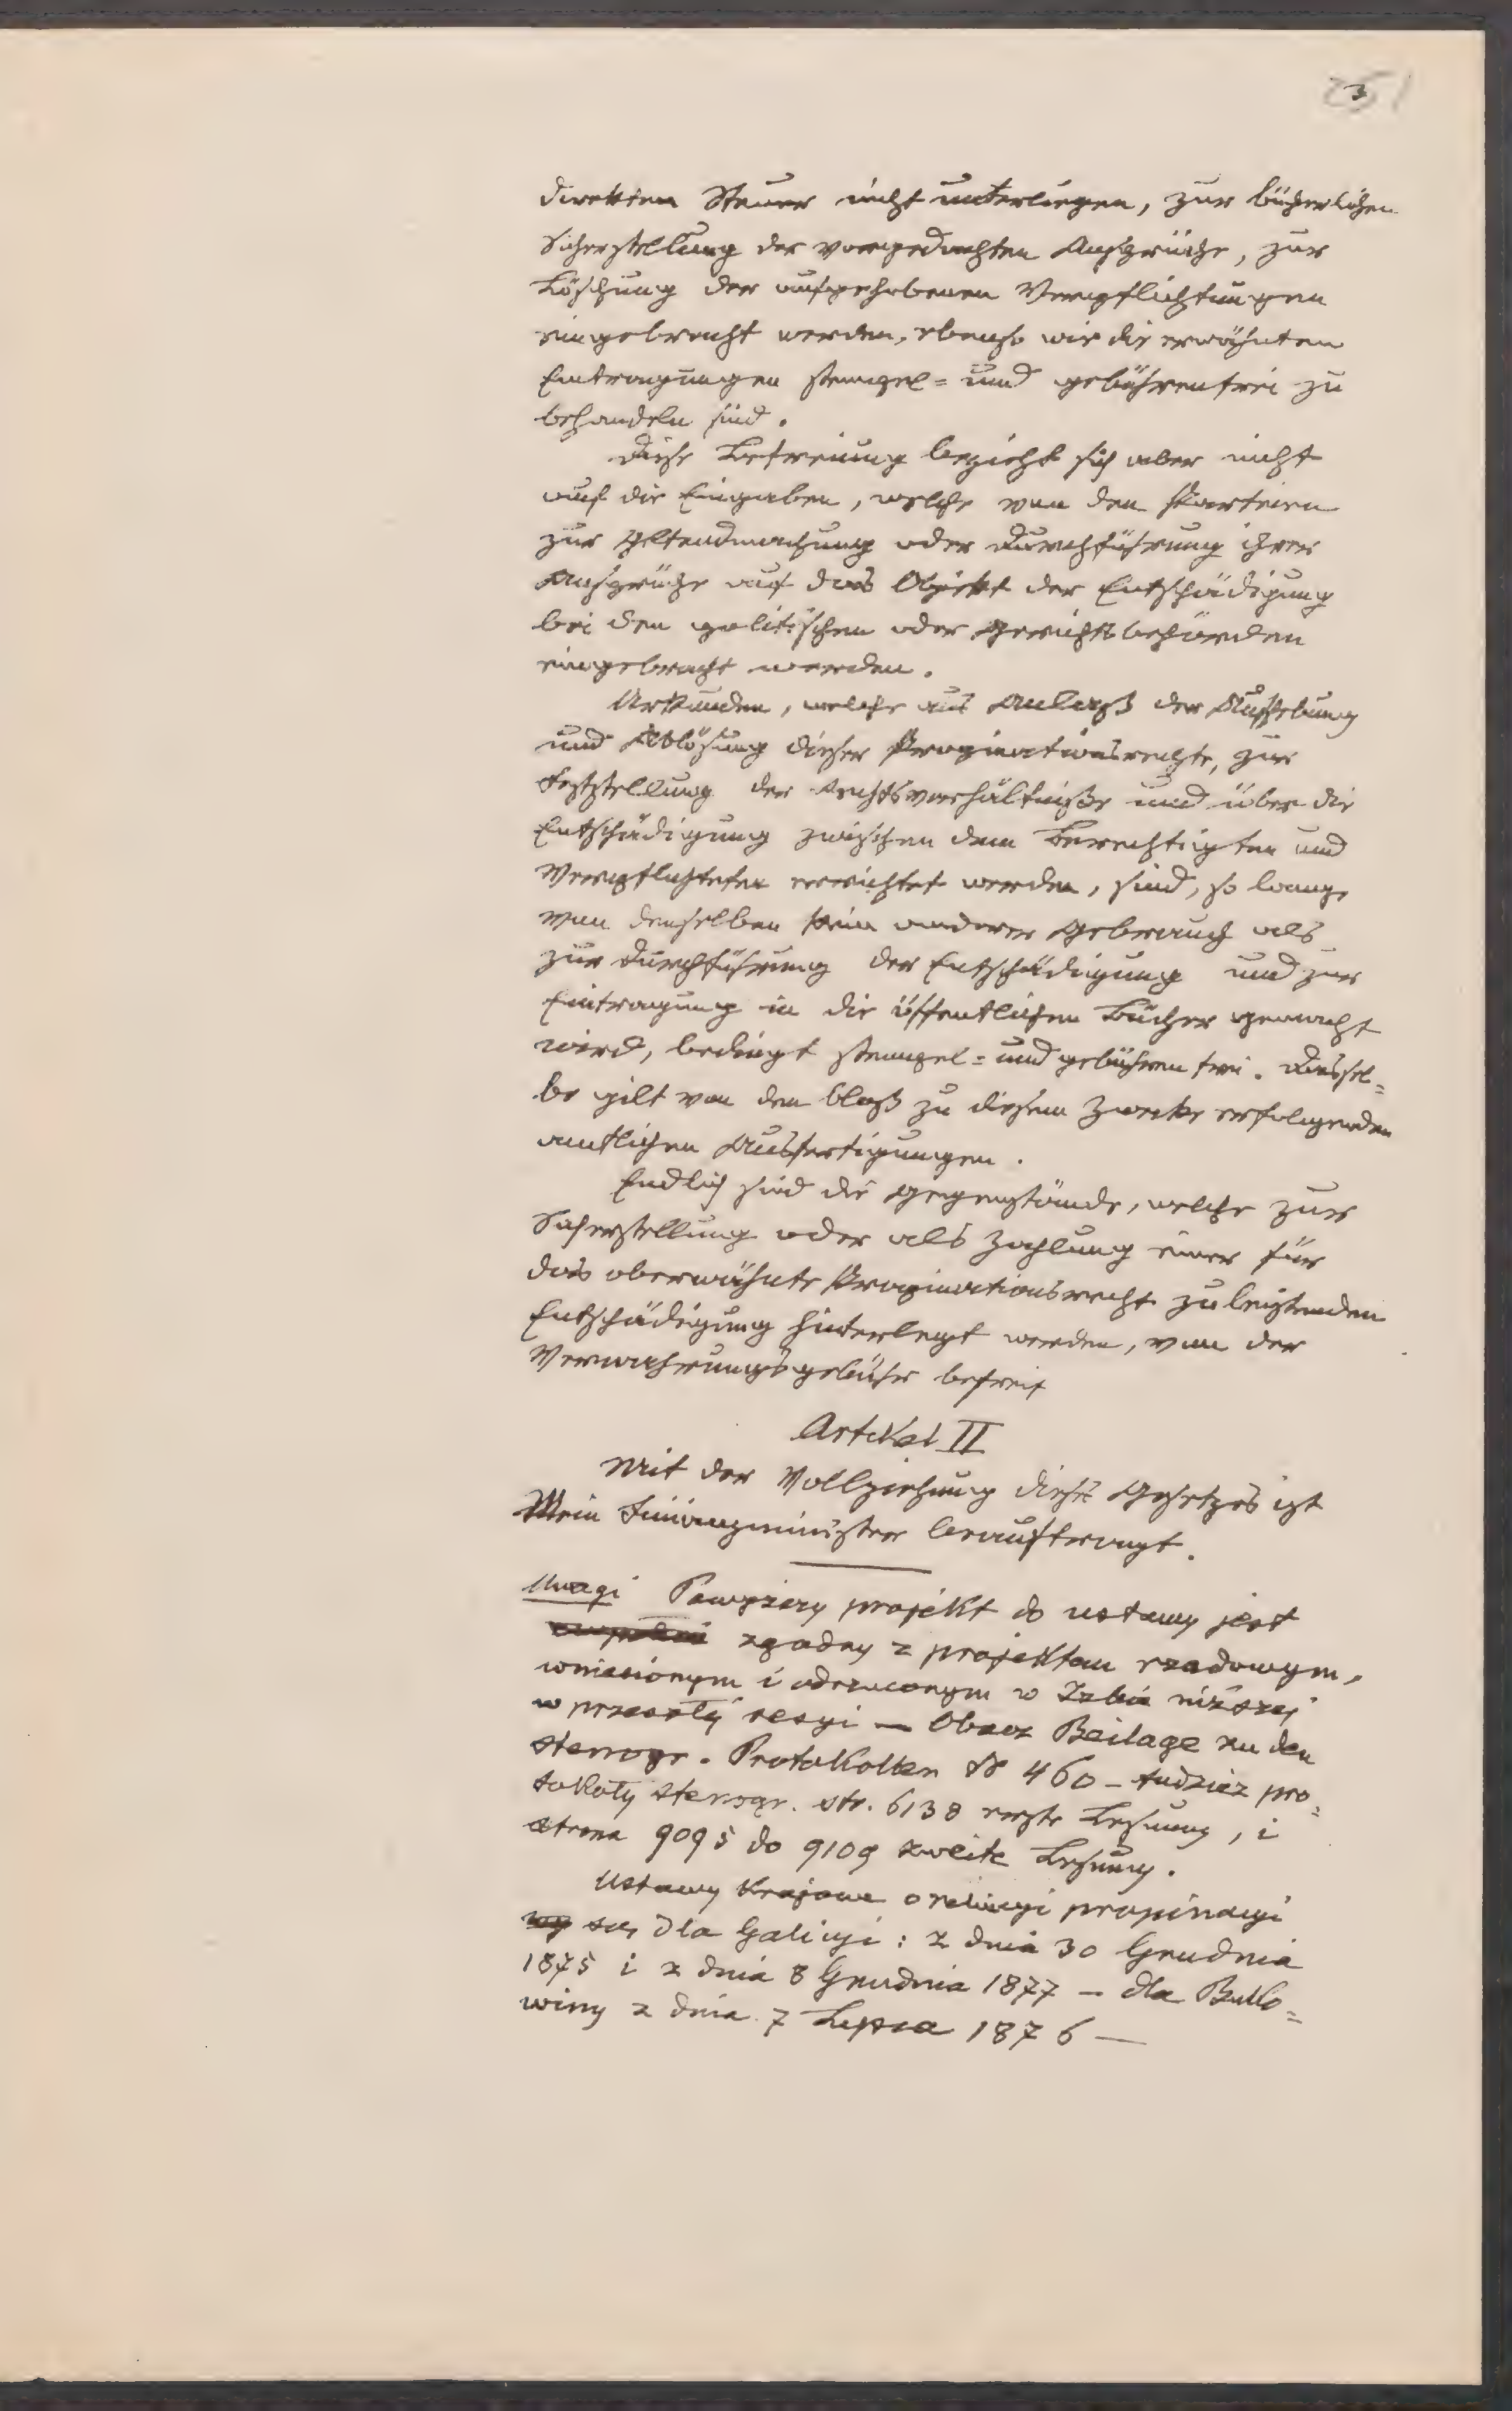 251
3
direkten Steuer nicht unterliegen, zur bücherlichen
Sicherstellung der vorgedachten Ansprüche, zur
Löschung der aufgehobenen Verpflichtungen
eingebracht werden, ebenso wie die erwähnten
Eintragungen stempel= und gebührenfrei zu
behandeln sind.
Diese Befreiung bezieht sich aber nicht
auf die Eingaben, welche von den Parteien
zur Geltendmachung oder Durchführung ihrer
Ansprüche auf das Objekt der Entschädigung
bei den politischen oder Gerichtsbehörden
eingebracht werden.
Urkunden, welche aus Anlaß der Aufhebung
und Ablösung dieser Propinationsrechte, zur
Feststellung der Rechtsverhältniße und über die
Entschädigung zwischen dem Berechtigten und
Verpflichteten errichtet werden, sind, so lange
von denselben kein anderer Gebrauch als
zur Durchführung der Entschädigung und zur
Eintragung in die öffentlichen Bücher gemacht
wird, bedingt stempel= und gebührenfrei. Dassel=
be gilt von den bloß zu diesem Zwecke erfolgenden
amtlichen Ausfertigungen.
Endlich sind die Gegenstände, welche zur
Sicherstellung oder als Zahlung einer für
das oberwähnte Propinationsrecht zu leistenden
Entschädigung hinterlegt werden, von der
Verwahrungsgebühr befreit
Artikel II
Mit der Vollziehung dieses Gesetzes ist
Mein Finanzminister beauftragt.
Uwagi Powyższy projekt do ustawy jest
zgodny z projektem rządowym,
wniesionym i odrzuconym w Izbie niższej
w przeszłéj sesyi — Obacz Beilage zu den
stenogr. Protokollen N 460 – tudzież pro=
tokoły stenogr. str. 6138 erste Lesung, i
strona 9095 do 9109 zweite Lesung.
Ustawy krajowe o relucyi propinacyi
są dla Galicyi: z dnia 30 Grudnia
1875 i z dnia 8 Grudnia 1877 — dla Buko=
winy z dnia 7 Lipca 1876 —